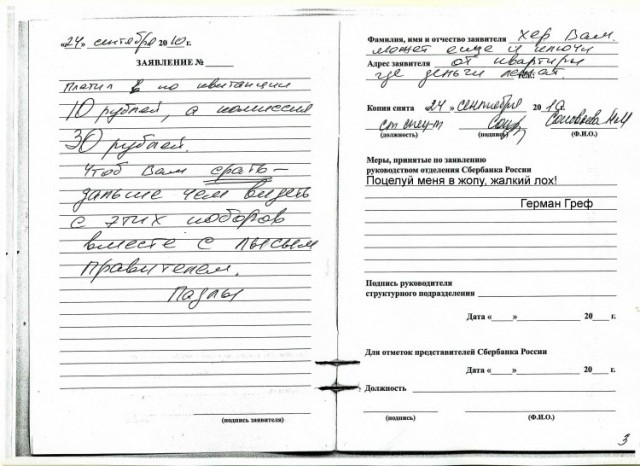 «24» сентября 2010 г.
ЗАЯВЛЕНИЕ №
Платил по квитанции
10 рублей, а комиссия
30 рублей.
Чтоб Вам срать
дальше чем видеть
с этих поборов
вместе с лысым
правителем.
Падлы
(подпись заявителя)
Фамилия, имя и отчество заявителя хер Вам.
может еще и ключи
Адрес заявителя от квартиры
где деньги лежат.
Копия снята «24» сентября 2010.
Соловьева Н.М
(должность) (подпись) (Ф.И.О.)
Меры, принятые по заявлению
руководством отделения Сбербанка России
Поцелуй меня в жопу, жалкий лох!
Герман Греф
Подпись руководителя
структурного подразделения
Дата «    »            20    г.
Для отметок представителей Сбербанка России
Дата «    »            20    г.
Должность
(подпись) (Ф.И.О.)
3